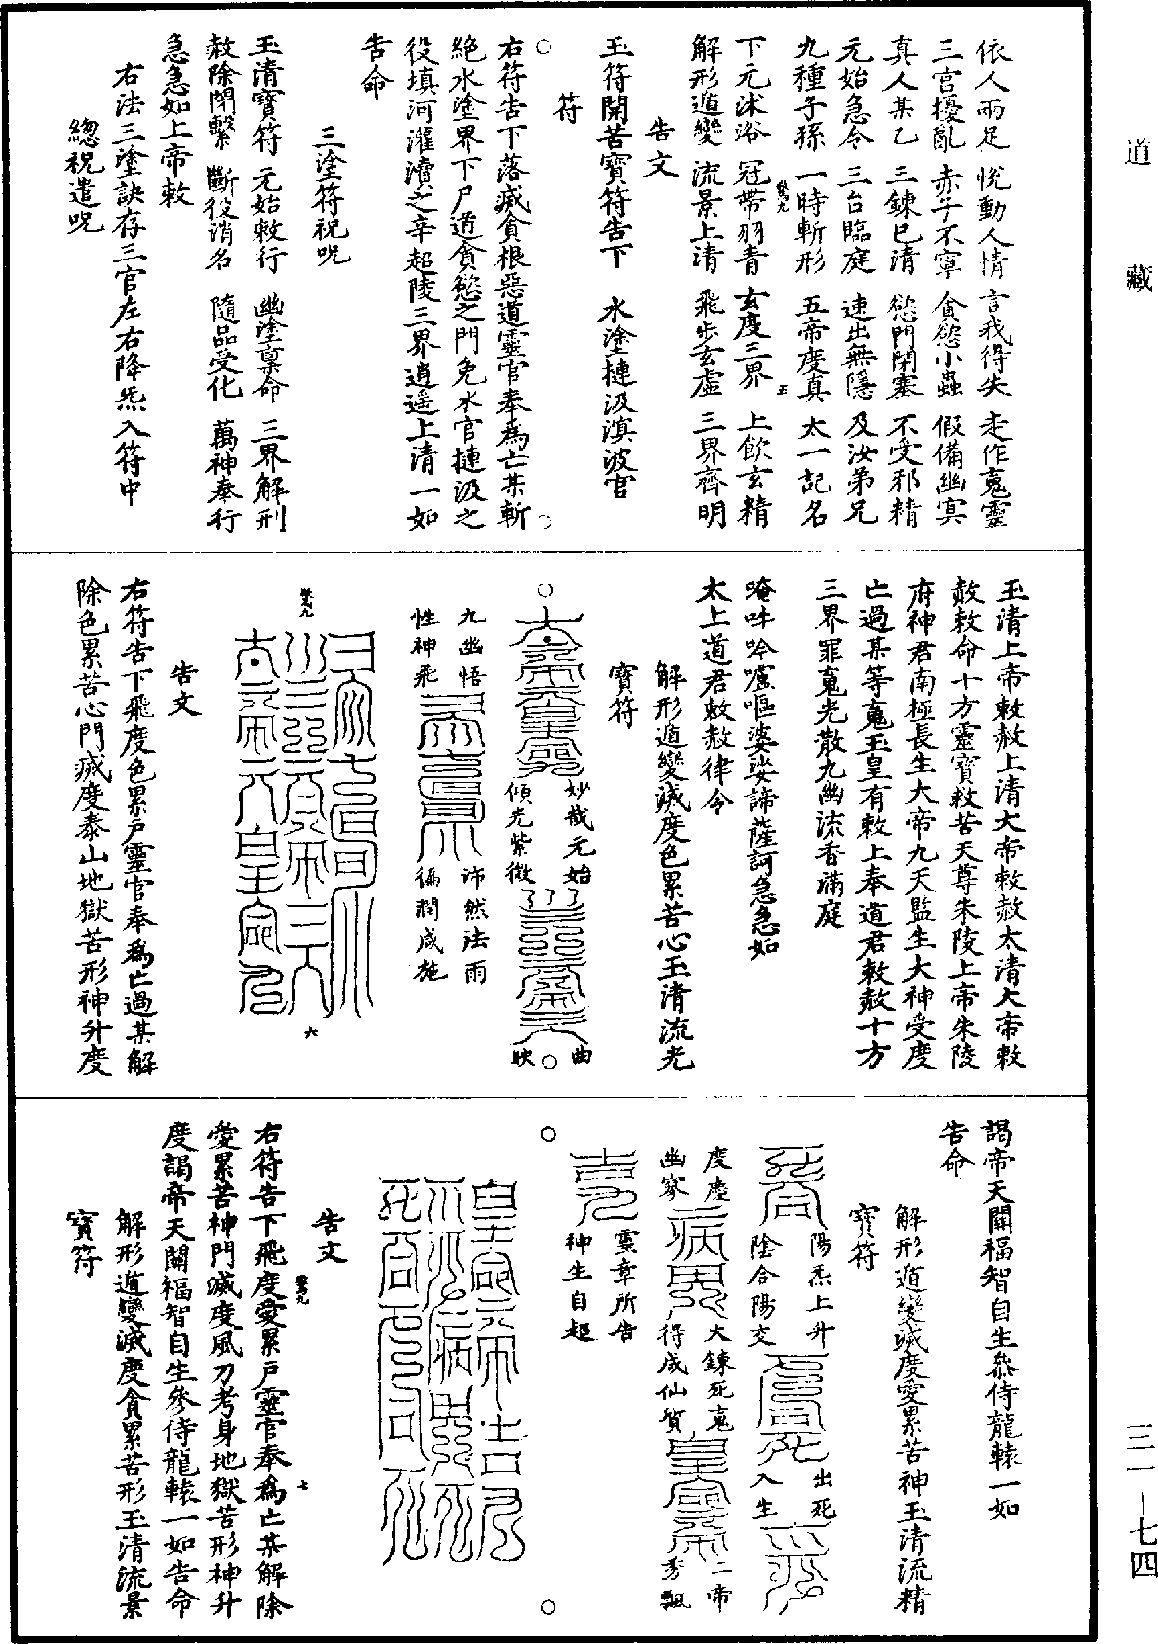 道藏
三一—七四
依人兩足　悅動人情　言我得失　走作䰟靈
三宮擾亂　赤子不寧　貪慾小蟲　假備幽冥
真人某乙　三鍊已清　慾門閉塞　不受邪精
元始急令　三台臨庭　速出無隱　及汝弟兄
九種子孫　一時斬形　五帝度真　太一記名
下元沐浴　冠帶羽青　玄度三界　上飲玄精
解形遁變　流景上清　飛步玄虛　三界齊明
告文
玉符開苦寶符告下　水塗摙汲溟波官
符
右符告下落滅貪根惡道靈官奉為亡某斬
絕水塗界下尸過貪慾之門免水官摙汲之
役填河灌瀆之辛超陵三界逍遥上清一如
告命
三塗符祝咒
玉清寶符　元始敕行　幽塗稟命　三界解刑
赦除閉繫　斷役消名　隨品受化　萬神奉行
急急如上帝敕
右法三塗訣存三官左右降炁入符中
總祝遣咒
玉清上帝敕赦上清大帝敕赦太清大帝敕
赦敕命十方靈寶救苦天尊朱陵上帝朱陵
府神君南極長生大帝九天監生大神受度
亡過某等䰟玉皇有敕上奉道君敕赦十方
三界罪䰟光散九幽流香滿庭
唵吽吟嚧嘔婆娑諦薩訶急急如
太上道君敕赦律令
解形遁變滅度色累苦心玉清流光
寶符
妙哉元始
傾光紫微
曲
映
九幽悟
性神飛
沛然法雨
徧潤咸施
六
告文
右符告下飛度色累戶靈官奉為亡過某解
除色累苦心門滅度泰山地獄苦形神升度
謁帝天闕福智自生叅侍龍轅一如
告命
解形遁變滅度愛累苦神玉清流精
寶符
陽炁上升
陰合陽交
出死
入生
度塵
幽寥
大鍊死䰟
得成仙質
二帝
秀飄
靈章所告
神生自超
告文
右符告下飛度愛累戶靈官奉為亡某解除
愛累苦神門滅度風刀考身地獄苦形神升
度謁帝天闕福智自生參侍龍轅一如告命
解形遁變滅度貪累苦形玉清流景
寶符